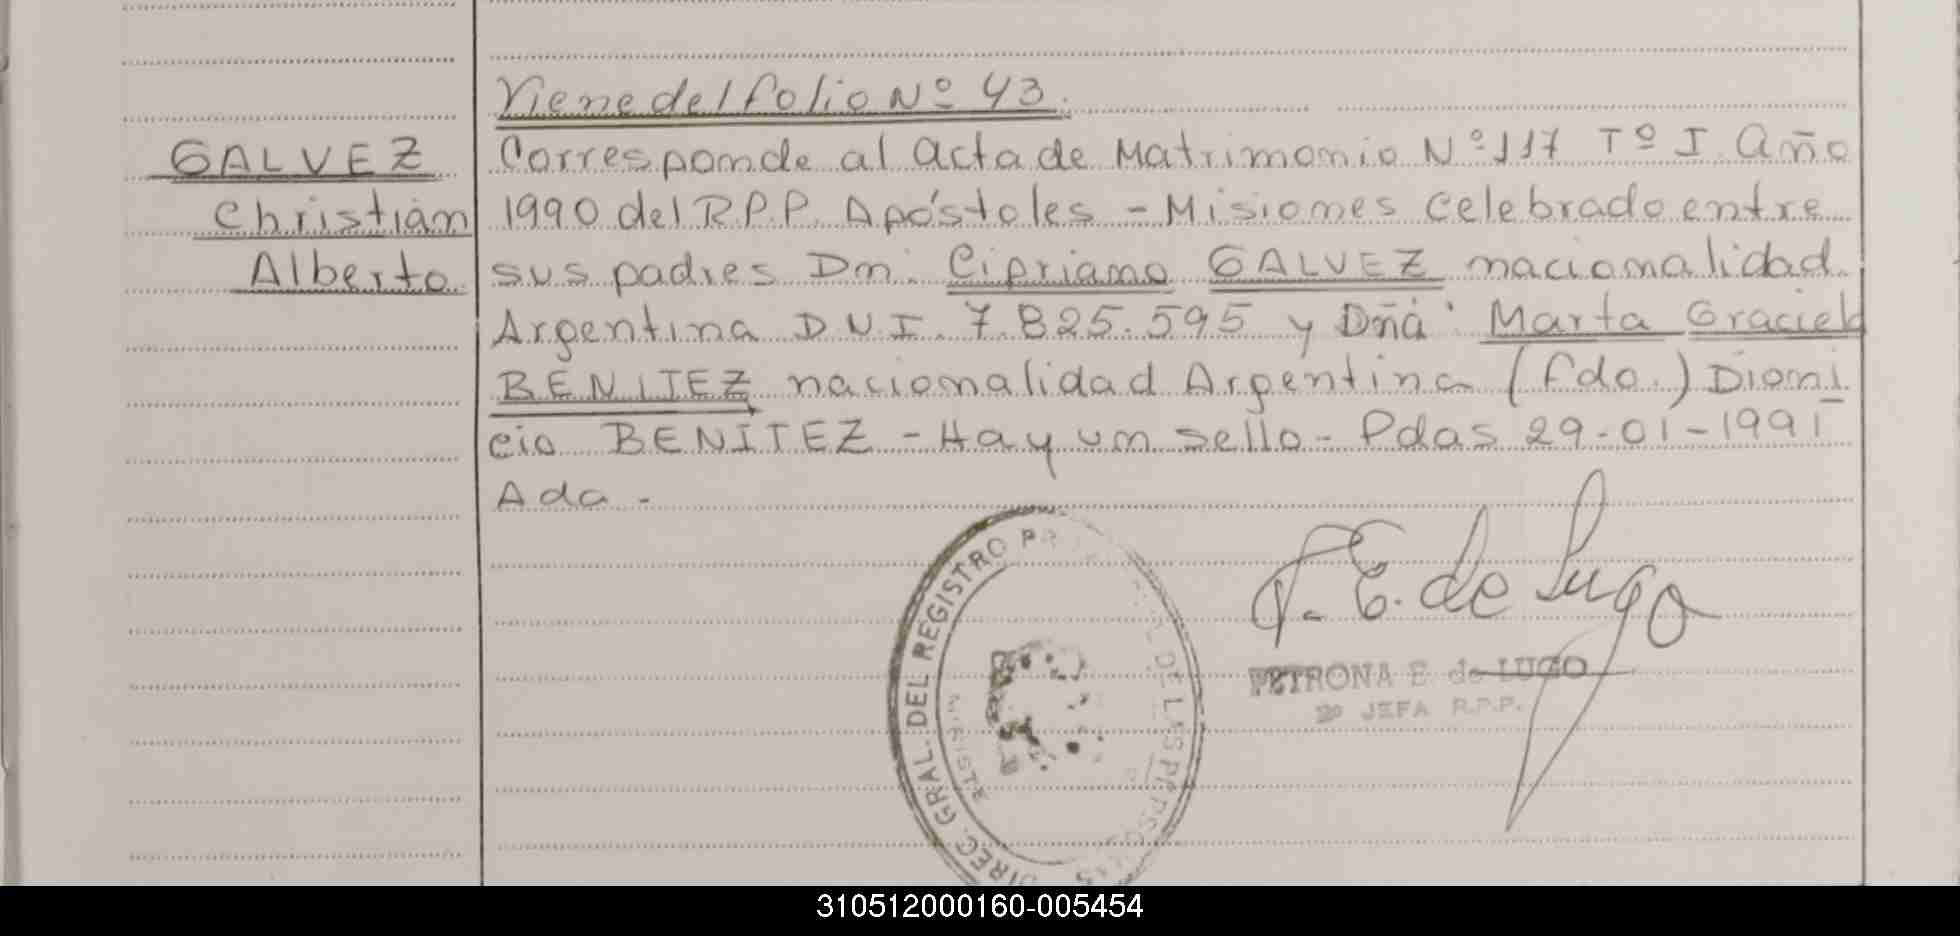 Viene del folio Nº 43.
GALVEZ
Corresponde al acta de Matrimonio Nº 117 Tº I año
Christian
1990 del R.P.P. Apóstoles - Misiones celebrado entre
Alberto
sus padres Dn. Cipriano GALVEZ nacionalidad
Argentina D.N.I. 7.825.595 y Dña Marta Graciela
BENITEZ nacionalidad Argentina (fdo.) Dioni
cio BENITEZ - Hay un sello - Pdas 29-01-1991
Ada -
DIREC. GRAL. DEL REGISTRO
P. E. de Lugo
PETRONA E de LUGO
JEFA R.P.P.
310512000160-005454